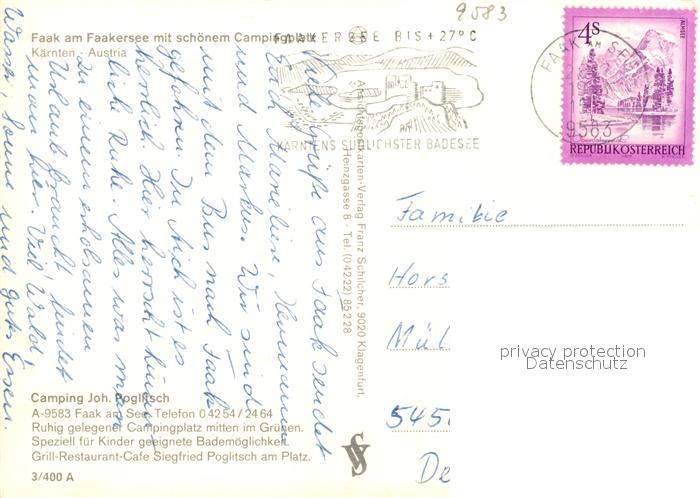 9583
Faak am Faakersee mit schönem Campingplatz
Kärnten - Austria
FAAKERSEE BIS +27°C
KÄRNTENS SÜDLICHSTER BADESEE
FAAK AM SEE
9583
4S
ALMSEE
REPUBLIK ÖSTERREICH
Viele Grüße aus Faak sendet
Euch Marelies, Hermann
und Markus. Wir sind
mit dem Bus nach Faak
gefahren. In sich ist es
herrlich. Hier herrscht himm-
lich Ruhe. Alles was man
zu einem erholsamen
Urlaub braucht, findet
man hier. Viel Wald,
Wasser, Sonne und gutes Essen.
Ansichtspostkarten-Verlag Franz Schilcher, 9020 Klagenfurt,
Heinzgasse 8 - Tel. (04222) 85228
Familie
Hors
Mül
545
De
privacy protection
Datenschutz
Camping Joh. Poglitsch
A-9583 Faak am See, Telefon 04254/2464
Ruhig gelegener Campingplatz mitten im Grünen.
Speziell für Kinder geeignete Bademöglichkeit.
Grill-Restaurant-Cafe Siegfried Poglitsch am Platz.
3/400 A